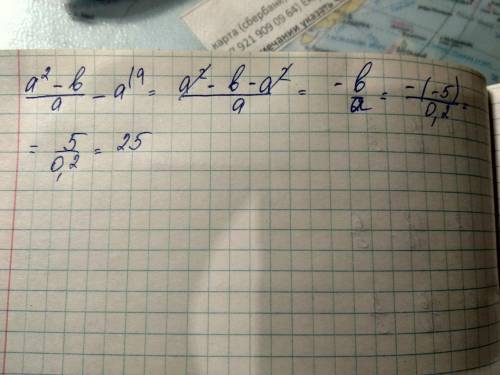 карта (сбербан
7 921 909 09 64) Ек
мечании указать
(a² - b)/a - a^(a = (a² - b - a²)/a = -b/a = -(-5)/0,2 =
= 5/0,2 = 25